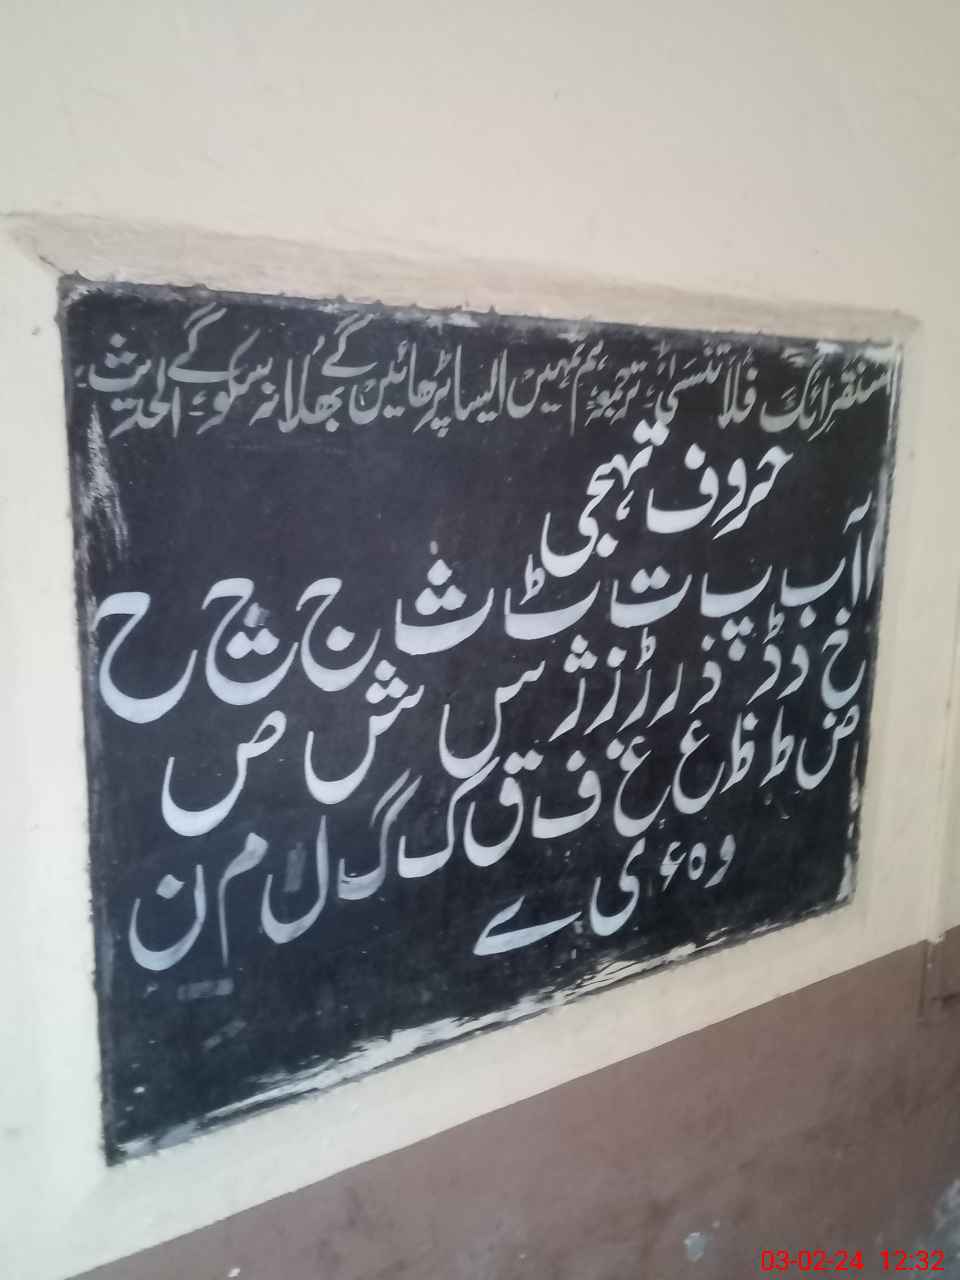 سنقرائک فلا تنسیٰ، ترجمہ ہم تمہیں ایسا پڑھائیں گے بھلا نہ سکو گے، الحدیث،
حروف تہجی
ا آ ب پ ت ٹ ث ج چ ح
خ د ڈ ذ ر ڑ ز ژ س ش ص
ض ط ظ ع غ ف ق ک گ ل م ن
و ہ ء ی ے
03-02-24 12:32